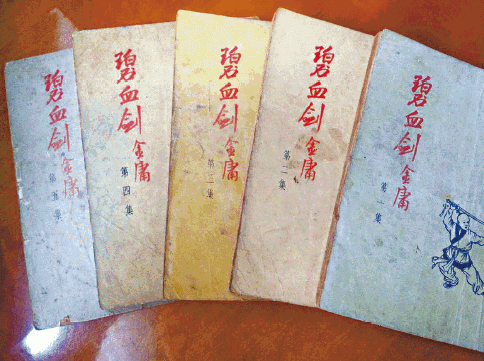 碧血剑 金庸
第五集
碧血剑 金庸
第四集
碧血剑 金庸
第三集
碧血剑 金庸
第二集
碧血剑 金庸
第一集